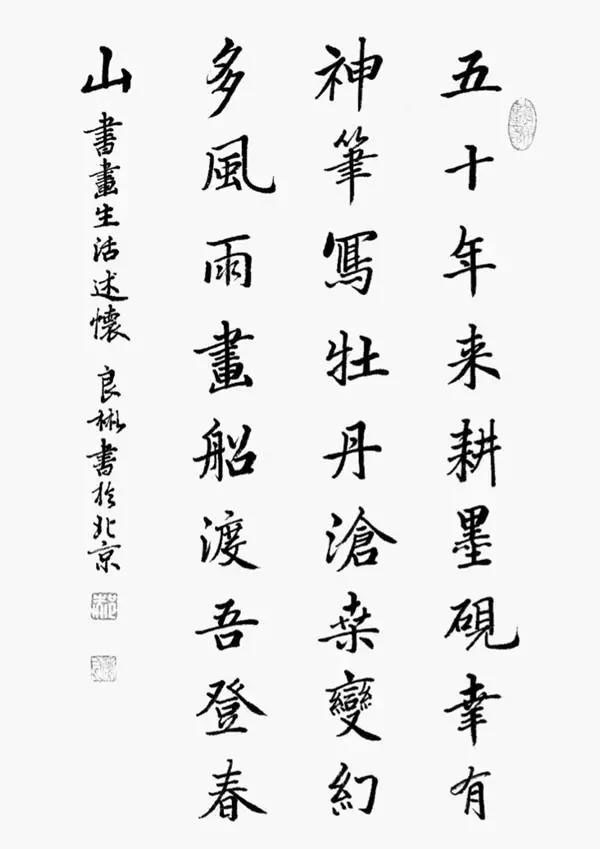 五十年来耕墨硯幸有
神筆寫牡丹滄桒變幻
多風雨畫船渡吾登春
山
書畫生活述懷 良彬書於北京